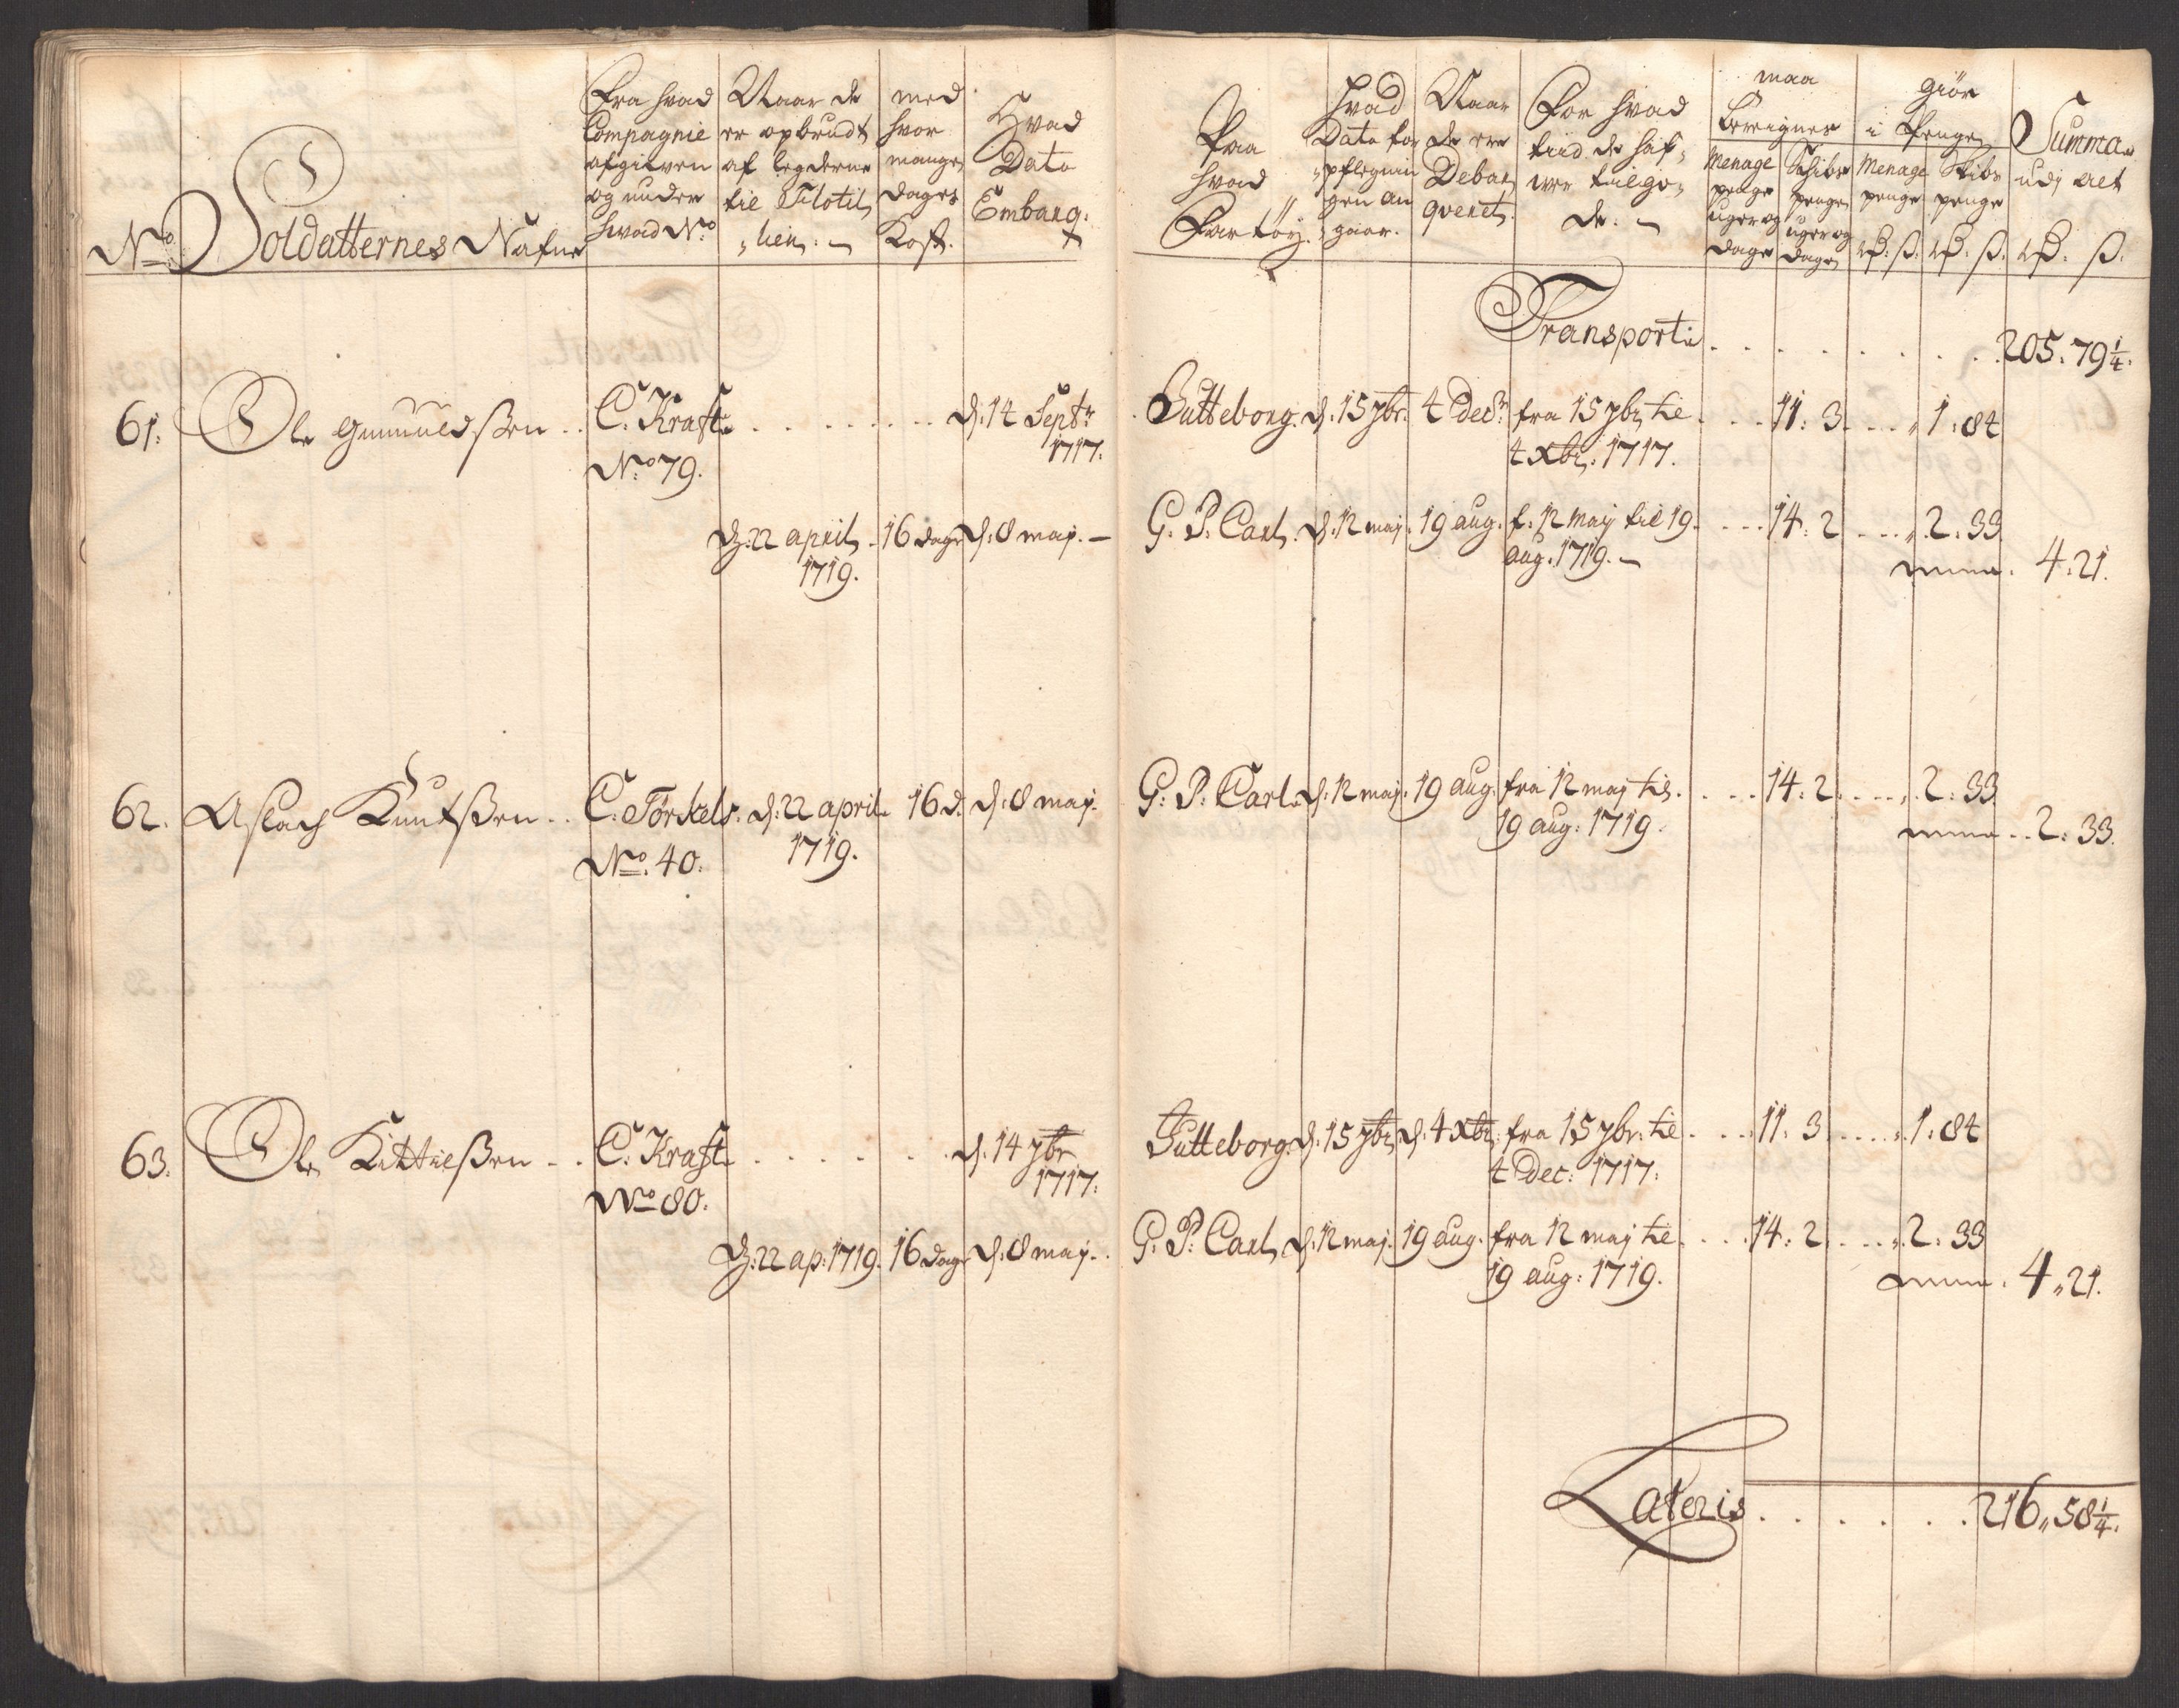 No
Soldatternes Nafne
Fra hvad
Compagnie
afgifven
og under
hvad No
Naar de
er opbrudt
af legderne
til Flotil„
„lien: —
med
hvor
mange
dages
Kost.
Hvad
Dato
Embarq:
Paa
hvad
Fartöy.
Hvad
Dato for
„pflegnin
gen an
„gaar.
Naar
de ere
Debar„
qveret.
For hvad
tiid de haf„
ver tilgo„
de: —
maa
bereignes
Menage
penge
uger og
dage
Schibs
penge
uger og
dage
giör
i Penge
Menage
penge
rd: ß.
Skibs
penge
rd: ß.
Summa
udj alt
rd: ß.
Transport . . . . . . . 205. 79 1/4.
61. Ole Gunnuldßen . . C. Kraft . . . . . . . d: 14 Septr Gutteborg. d. 15 7br. 4 Decr fra 15 7br til . . . 11: 3 . . . „ 1: 84
No 79. 1717. 4 Xbr: 1717.
d: 22 april 16 dage d: 8 maj. — G. P. Carl. d. 12 maj. 19 aug. f. 12 maij til 19. . . . 14: 2 . . . „ 2: 33
1719. aug. 1719. — 4: 21.
62. Aslach Knutßen . . C. Törkels. d: 22 april 16 d. d: 8 maj. G: P: Carl d: 12 maj. 19 aug. fra 12 maj til . . . 14: 2 . . . „ 2: 33
No. 40. 1719. 19 aug: 1719. . . 2: 33.
63. Ole Kittilßen . . C. Kraft . . . . . . . d. 14 7br Gutteborg. d. 15 7br d. 4 Xbr: fra 15 7br. til . . . 11: 3 . . . „ 1: 84
No 80. 1717. 4 Dec: 1717.
d: 22 ap: 1719. 16 dage d: 8 maj. . G: P: Carl d. 12 maj. 19 aug. fra 12 maj til . . . 14: 2 . . . „ 2: 33
19 aug: 1719. 4„ 21.
Lateris . . . . . . . 216„ 58 1/4.